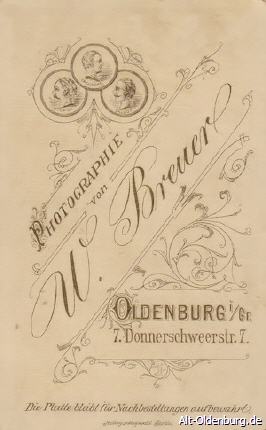 PHOTOGRAPHIE
von
W. Breuer
OLDENBURG i/Gr.
7. Donnerschweerstr. 7.
Die Platte bleibt für Nachbestellungen aufbewahrt.
Alt-Oldenburg.de